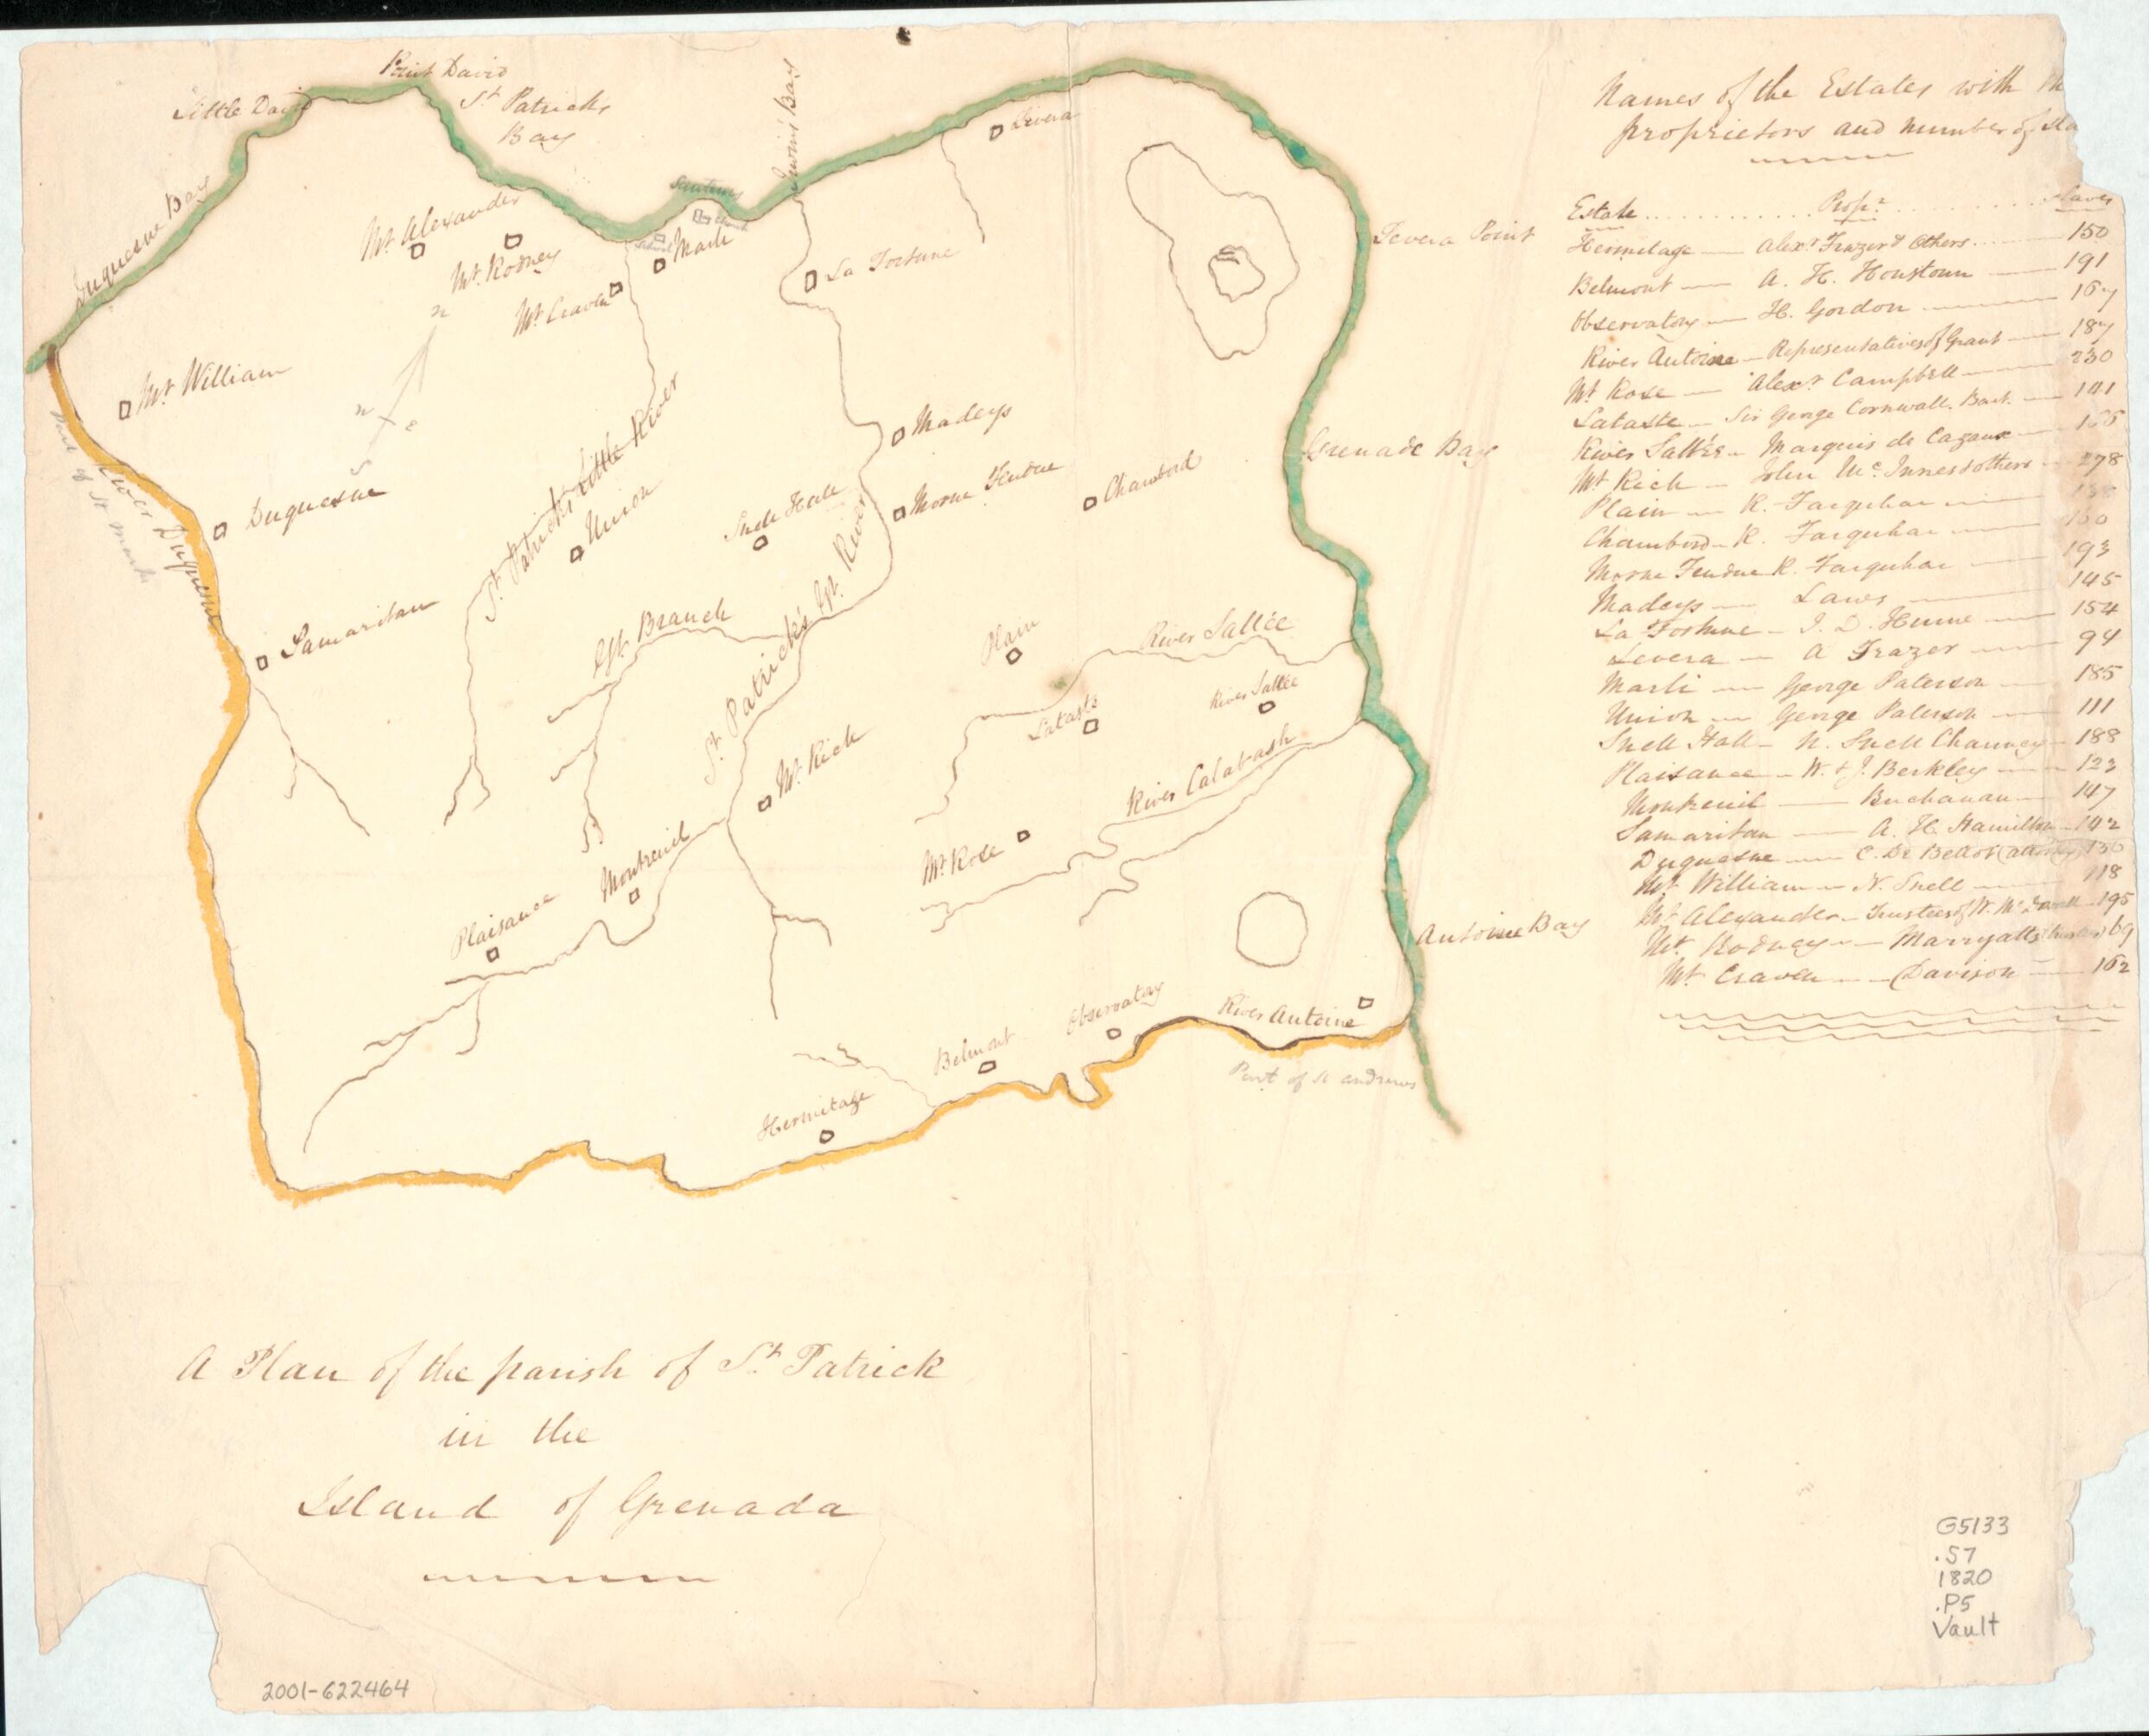 Point David
Little David
St Patricks
Bay
Duquesne Bay
Irwin's Bay
Levera
Sauteurs
Church
School
Marli
Mt Alexander
Mt. Rodney
Mt Craven
La Fortune
Levera Point
n
w
e
s
Mt William
Part of St Marks
River Duquesne
Duquesne
St Patricks Little River
Union
Snell Hall
Madeys
Morne Fendue
Chambord
Grenade Bay
Samaritan
Gt. Branch
St Patrick's Gt. River
Plain
River Sallée
River Sallée
Lataste
River Calabash
Mt Rich
Mt. Rose
Montreuil
Plaisance
Antoine Bay
River Antoine
Observatory
Belmont
Hermitage
Part of St Andrews
Names of the Estates with th
proprietors and number of sla
Estate ............ Propr. ............ Slaves
Hermitage — Alexr Frazer & Others — 150
Belmont — A. H. Houstoun — 191
Observatory — H. Gordon — 167
River Antoine — Representatives of Grant — 187
Mt Rose — Alexr Campbell — 230
Lataste — Sir George Cornwall. Bart. — 141
River Sallée — Marquis de Cazaux —
Mt Rich — John McInnes & others — 278
Plain — R. Farquhar —
Chambord — R. Farquhar — 160
Morne Fendue R. Farquhar — 193
Madeys — Laws — 145
La Fortune — J. D. Hume — 154
Levera — A Frazer — 94
Marli — George Paterson — 185
Union — George Paterson — 111
Snell Hall — N. Snell Chauncy — 188
Plaisance — W. & J. Berkley — 123
Montreuil — Buchanan — 147
Samaritan — A. H. Hamilton — 142
Duquesne — C. De Bellot (attorney)
Mt William — N. Snell — 118
Mt Alexander — Trustees of W. — 195
Mt. Rodney — Marryatts — 69
Mt Craven — Davison — 162
A Plan of the parish of St. Patrick
in the
Island of Grenada
G5133
.S7
1820
.P5
Vault
2001-622464